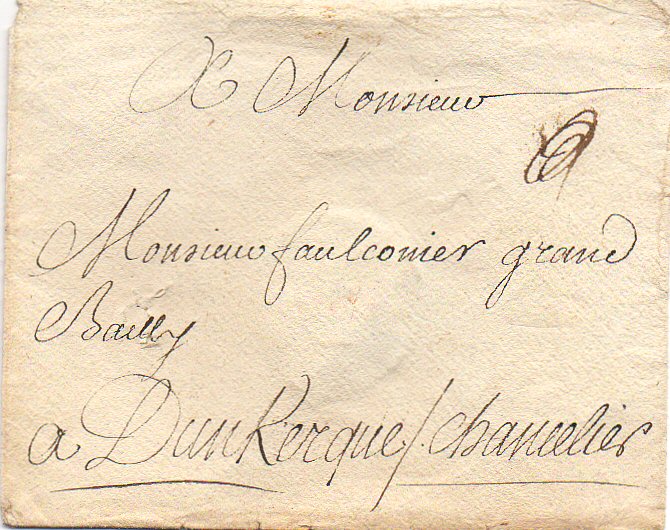 A Monsieur
Monsieur faulconier grand
Bailly
a Dunkerque / chancelier